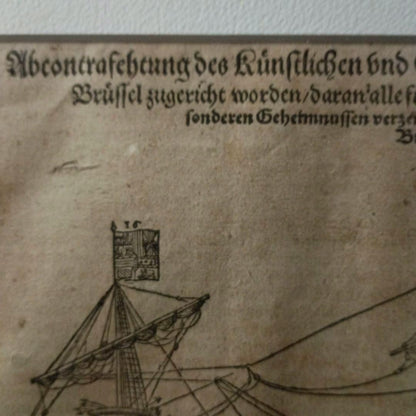 Abcontrafehtung des Künstlichen vnd
Brüssel zugericht worden/daran alle
sonderen Geheimnussen